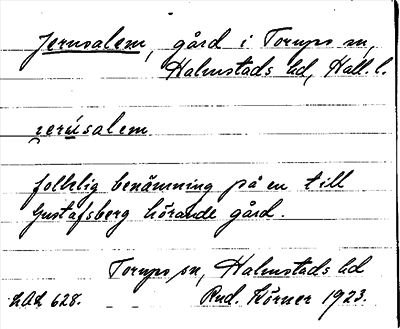 Jerusalem, gård i Torups sn,
Halmstads hd, Hall. l.
jerúsalem
folklig benämning på en till
Gustafsberg hörande gård.
Torups sn, Halmstads hd
LAL 628. Rud. Körner 1923.